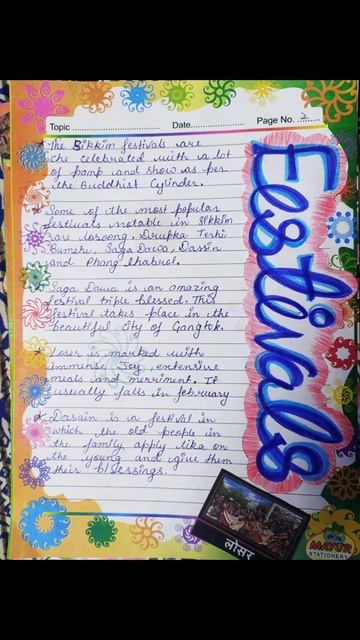 Topic ........................ Date.................. Page No. 2
The Sikkim festivals are
the celebrated with a lot
of pamp and show as per
the Buddhist Cylinder.
Some of the most popular
festivals notable in Sikkim
are losoong, Drupka Teshi
Bumchu, Saga Dawa, Dassin
and Phang lhabsol.
Saga Dawa is an amazing
festival triple blessed. This
festival takes place in the
beautiful city of Gangtok.
Loser is marked with
immense Joy extensive
meals and merriment. It
usually falls in february
Dasain is a festival in
which the old people in
the family apply tika on
the young and give them
their blessings.
Festivals
लोसर
MAYUR
STATIONERY